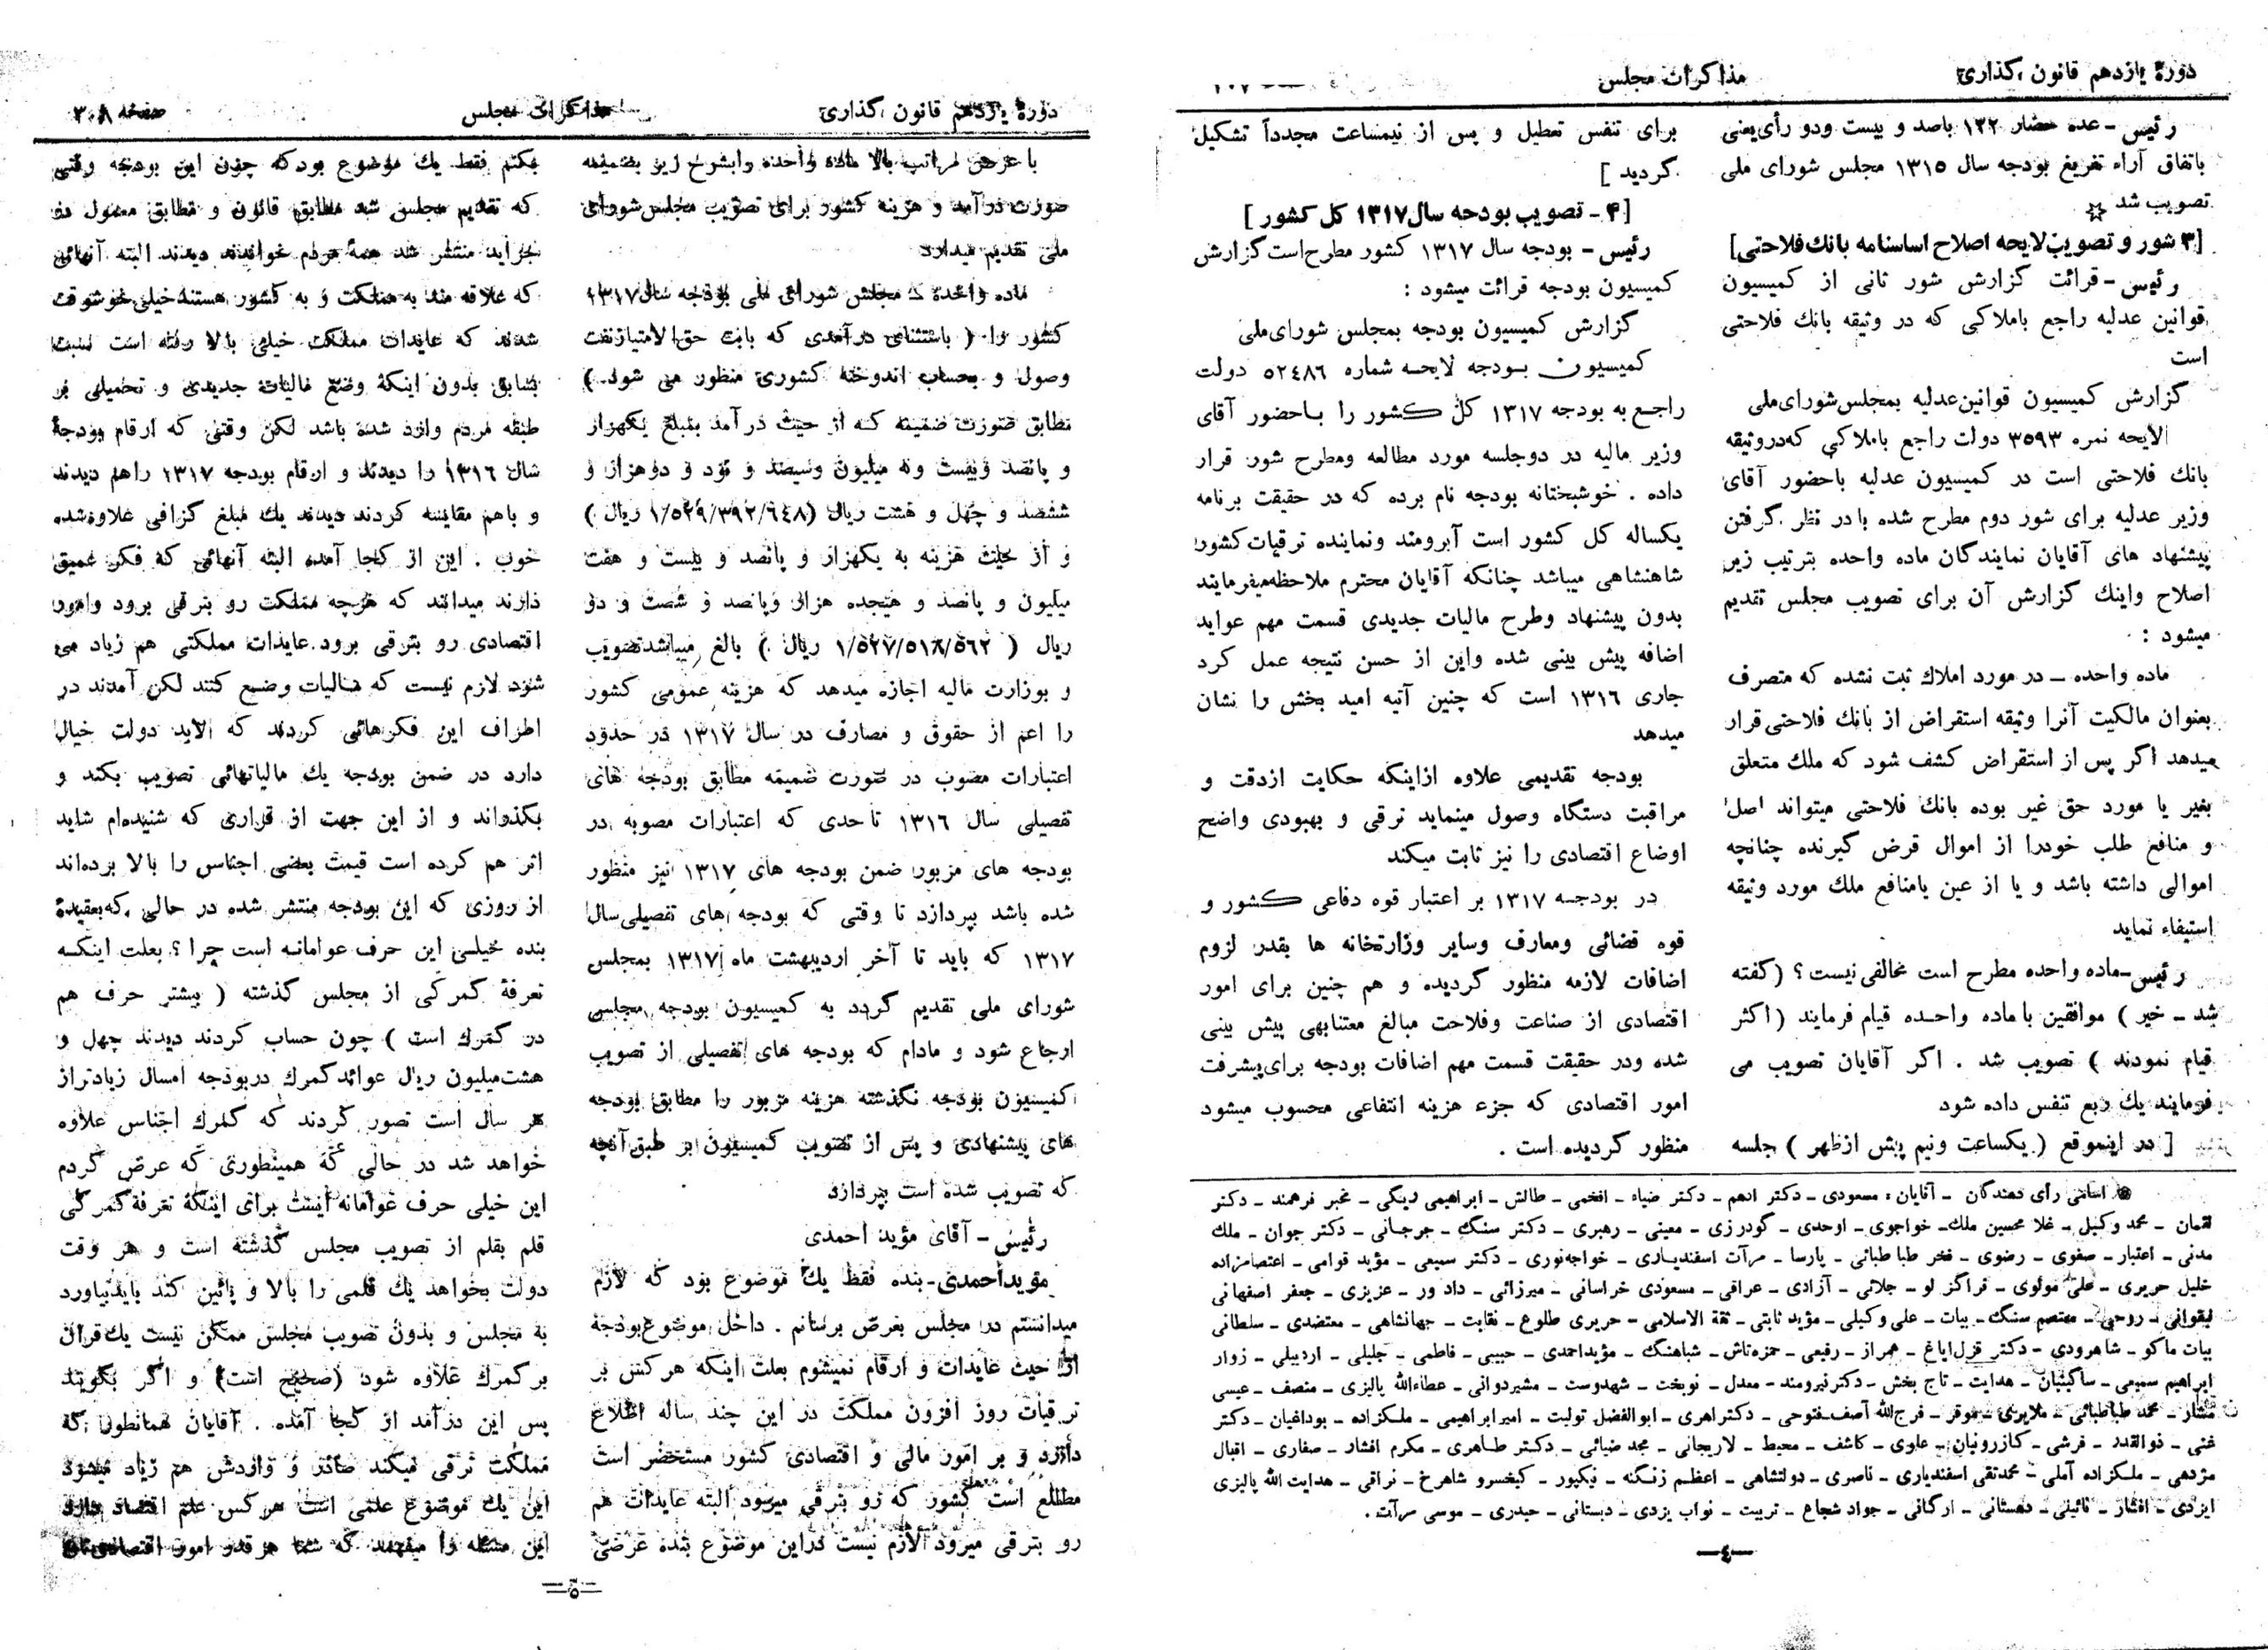 دورهٔ یازدهم قانون گذاری
مذاکرات مجلس
رئیس - عده حضار ۱۲۲ باصد و بیست ودو رأی یعنی
باتفاق آراء تفریغ بودجه سال ۱۳۱۵ مجلس شورای ملی
تصویب شد
[۳ شور و تصویب لایحه اصلاح اساسنامه بانک فلاحتی]
رئیس - قرائت گزارش شور ثانی از کمیسیون
قوانین عدلیه راجع باملاکی که در وثیقه بانک فلاحتی
است
گزارش کمیسیون قوانین عدلیه بمجلس شورای ملی
لایحه نمره ۳۵۹۳ دولت راجع باملاکی که در وثیقه
بانک فلاحتی است در کمیسیون عدلیه باحضور آقای
وزیر عدلیه برای شور دوم مطرح شده با در نظر گرفتن
پیشنهاد های آقایان نمایندگان ماده واحده بترتیب زیر
اصلاح واینک گزارش آن برای تصویب مجلس تقدیم
میشود :
ماده واحده ــ در مورد املاک ثبت نشده که متصرف
بعنوان مالکیت آنرا وثیقه استقراض از بانک فلاحتی قرار
میدهد اگر پس از استقراض کشف شود که ملک متعلق
بغیر یا مورد حق غیر بوده بانک فلاحتی میتواند اصل
و منافع طلب خودرا از اموال قرض گیرنده چنانچه
اموالی داشته باشد و یا از عین یامنافع ملک مورد وثیقه
استیفاء نماید
رئیس - ماده واحده مطرح است مخالفی نیست ؟ (گفته
شد ــ خیر ) موافقین با ماده واحده قیام فرمایند (اکثر
قیام نمودند ) تصویب شد . اگر آقایان تصویب می
فرمایند یک ربع تنفس داده شود
[ در اینموقع ( یکساعت ونیم پیش ازظهر ) جلسه
برای تنفس تعطیل و پس از نیمساعت مجدداً تشکیل
گردید ]
[۴ - تصویب بودجه سال ۱۳۱۷ کل کشور ]
رئیس - بودجه سال ۱۳۱۷ کشور مطرح است گزارش
کمیسیون بودجه قرائت میشود :
گزارش کمیسیون بودجه بمجلس شورای ملی
کمیسیون بودجه لایحه شماره ۵۲۴۸۶ دولت
راجع به بودجه ۱۳۱۷ کل کشور را باحضور آقای
وزیر مالیه در دوجلسه مورد مطالعه ومطرح شور قرار
داده . خوشبختانه بودجه نام برده که در حقیقت برنامه
یکساله کل کشور است آبرومند ونماینده ترقیات کشور
شاهنشاهی میباشد چنانکه آقایان محترم ملاحظه میفرمایند
بدون پیشنهاد وطرح مالیات جدیدی قسمت مهم عواید
اضافه پیش بینی شده واین از حسن نتیجه عمل کرد
جاری ۱۳۱۶ است که چنین آتیه امید بخش را نشان
میدهد
بودجه تقدیمی علاوه ازاینکه حکایت ازدقت و
مراقبت دستگاه وصول مینماید ترقی و بهبودی واضح
اوضاع اقتصادی را نیز ثابت میکند
در بودجه ۱۳۱۷ بر اعتبار قوه دفاعی کشور و
قوه قضائی ومعارف وسایر وزارتخانه ها بقدر لزوم
اضافات لازمه منظور گردیده و هم چنین برای امور
اقتصادی از صناعت وفلاحت مبالغ معتنابهی پیش بینی
شده ودر حقیقت قسمت مهم اضافات بودجه برای پیشرفت
امور اقتصادی که جزء هزینه انتفاعی محسوب میشود
منظور گردیده است .
اسامی رأی دهندگان - آقایان : مسعودی - دکتر ادهم - دکتر ضیاء - افخمی - طالش - ابراهیمی دیگی - مخبر فرهمند - دکتر
لقمان - محمد وکیل - غلا محسین ملک - خواجوی - اوحدی - گودرزی - معینی - رهبری - دکتر سنگ - جرجانی - دکتر جوان - ملک
مدنی - اعتبار - صفوی - رضوی - فخر طبا طبائی - پارسا - مرآت اسفندیاری - خواجه نوری - دکتر سمیعی - مؤید قوامی - اعتصام زاده
خلیل حریری - علی مولوی - قراگز لو - جلائی - آزادی - عراقی - مسعودی خراسانی - میرزائی - داد ور - عزیزی - جعفر اصفهانی
لیقوانی - روحی - معتصم سنگ - بیات - علی وکیلی - مؤید ثابتی - ثقة الاسلامی - حریری طلوع - نقابت - جهانشاهی - معتضدی - سلطانی
بیات ماکو - شاهرودی - دکتر قزل ایاغ - همراز - رفیعی - حمزه تاش - شباهنگ - مؤیداحمدی - حبیبی - فاطمی - جلیلی - اردبیلی - زوار
ابراهیم سمیعی - ساگینیان - هدایت - تاج بخش - دکتر نیرومند - معدل - نوبخت - شهدوست - مشیردوانی - عطاءالله پالیزی - منصف - عیسی
مشار - محمد طباطبائی - ملایری - موقر - فرج الله آصف - فتوحی - دکتر اهری - ابوالفضل تولیت - امیر ابراهیمی - ملکزاده - بوداغیان - دکتر
غنی - ذوالقدر - فرشی - کازرونیان - علوی - کاشف - محیط - لاریجانی - مجد ضیائی - دکتر طاهری - مکرم افشار - صفاری - اقبال
مژدهی - ملکزاده آملی - محمدتقی اسفندیاری - ناصری - دولتشاهی - اعظم زنگنه - نیکپور - کیخسرو شاهرخ - نراقی - هدایت الله پالیزی
ایزدی - افشار - نائینی - دهستانی - ارگانی - جواد شجاع - تربیت - نواب یزدی - دبستانی - حیدری - موسی مرآت .
—٤—
دورهٔ یازدهم قانون گذاری
مذاکرات مجلس
صفحه ۳۰۸
با عرض مراتب بالا ماده واحده رابشرح زیر بضمیمه
صورت درآمد و هزینه کشور برای تصویب مجلس شورای
ملی تقدیم میدارد
ماده واحده - مجلس شورای ملی بودجه سال ۱۳۱۷
کشور را ( باستثنای درآمدی که بابت حق الامتیاز نفت
وصول و بحساب اندوخته کشوری منظور می شود )
مطابق صورت ضمیمه که از حیث درآمد بمبلغ یکهزار
و پانصد و بیست و نه میلیون وسیصد و نود و دو هزار و
ششصد و چهل و هشت ریال (۱/۵۲۹/۳۹۲/۶۴۸ ریال )
و از حیث هزینه به یکهزار و پانصد و بیست و هفت
میلیون و پانصد و هیجده هزار وپانصد و شصت و دو
ریال ( ۱/۵۲۷/۵۱۸/۵۶۲ ریال ) بالغ میباشد تصویب
و بوزارت مالیه اجازه میدهد که هزینه عمومی کشور
را اعم از حقوق و مصارف در سال ۱۳۱۷ در حدود
اعتبارات مصوب در صورت ضمیمه مطابق بودجه های
تفصیلی سال ۱۳۱۶ تا حدی که اعتبارات مصوبه در
بودجه های مزبور ضمن بودجه های ۱۳۱۷ نیز منظور
شده باشد بپردازد تا وقتی که بودجه های تفصیلی سال
۱۳۱۷ که باید تا آخر اردیبهشت ماه ۱۳۱۷ بمجلس
شورای ملی تقدیم گردد به کمیسیون بودجه مجلس
ارجاع شود و مادام که بودجه های تفصیلی از تصویب
کمیسیون بودجه نگذشته هزینه مزبور را مطابق بودجه
های پیشنهادی و پس از تصویب کمیسیون بر طبق آنچه
که تصویب شده است بپردازد
رئیس - آقای مؤید احمدی
مؤیداحمدی - بنده فقط یک موضوع بود که لازم
میدانستم در مجلس بعرض برسانم . داخل موضوع بودجه
از حیث عایدات و ارقام نمیشوم بعلت اینکه هر کس بر
ترقیات روز افزون مملکت در این چند ساله اطلاع
دارد و بر امور مالی و اقتصادی کشور مستحضر است
مطلع است کشور که رو بترقی میرود البته عایدات هم
رو بترقی میرود لازم نیست دراین موضوع بنده عرضی
بکنم فقط یک موضوع بود که چون این بودجه وقتی
که تقدیم مجلس شد مطابق قانون و مطابق معمول در
جراید منتشر شد همهٔ مردم خواندند دیدند البته آنهائی
که علاقه مند به مملکت و به کشور هستند خیلی خوشوقت
شدند که عایدات مملکت خیلی بالا رفته است نسبت
بسابق بدون اینکه وضع مالیات جدیدی و تحمیلی بر
طبقه مردم وارد شده باشد لکن وقتی که ارقام بودجهٔ
سال ۱۳۱۶ را دیدند و ارقام بودجه ۱۳۱۷ راهم دیدند
و باهم مقایسه کردند دیدند یک مبلغ گزافی علاوه شده
خوب . این از کجا آمده البته آنهائی که فکر عمیق
دارند میدانند که هرچه مملکت رو بترقی برود وامور
اقتصادی رو بترقی برود عایدات مملکتی هم زیاد می
شود لازم نیست که مالیات وضع کنند لکن آمدند در
اطراف این فکرهائی کردند که لابد دولت خیال
دارد در ضمن بودجه یک مالیاتهائی تصویب بکند و
بگذراند و از این جهت از قراری که شنیده‌ام شاید
اثر هم کرده است قیمت بعضی اجناس را بالا برده‌اند
از روزی که این بودجه منتشر شده در حالی که بعقیدهٔ
بنده خیلی این حرف عوامانه است چرا ؟ بعلت اینکه
تعرفهٔ گمرکی از مجلس گذشته ( بیشتر حرف هم
در گمرک است ) چون حساب کردند دیدند چهل و
هشت میلیون ریال عوائد گمرک دربودجه امسال زیادتر از
هر سال است تصور کردند که گمرک اجناس علاوه
خواهد شد در حالی که همینطوری که عرض کردم
این خیلی حرف عوامانه ایست برای اینکه تعرفهٔ گمرکی
قلم بقلم از تصویب مجلس گذشته است و هر وقت
دولت بخواهد یک قلمی را بالا و پائین کند باید بیاورد
به مجلس و بدون تصویب مجلس ممکن نیست یک قران
بر گمرک علاوه شود (صحیح است) و اگر بگویند
پس این درآمد از کجا آمده . آقایان همانطور که
مملکت ترقی میکند صادر و واردش هم زیاد میشود
این یک موضوع علمی است هر کس علم اقتصاد دارد
این مسئله را میفهمد که شما هر قدر امور
—۵—